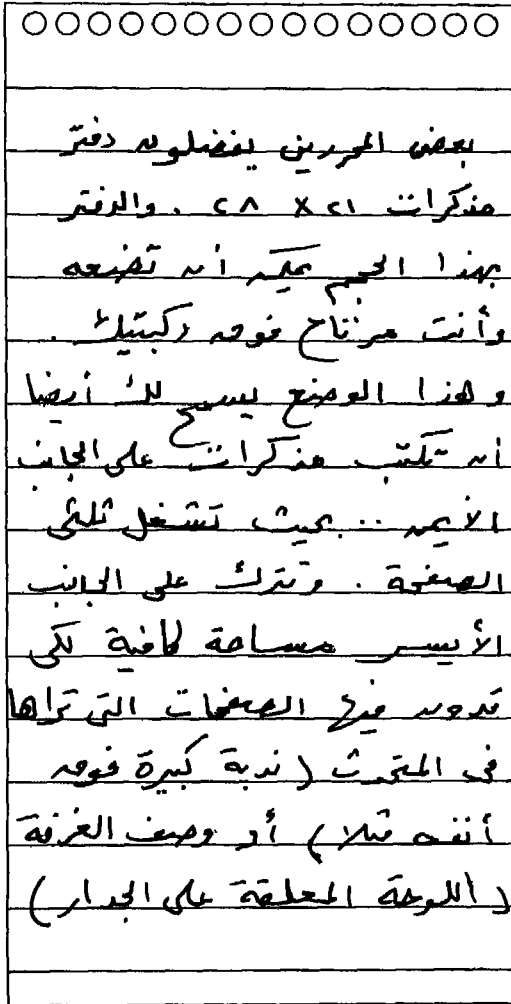 بعض المحررين يفضلون دفتر
مذكرات ٢١ × ٢٨ . والدفتر
بهذا الحجم يمكن أن تضعه
وأنت مرتاح فوق ركبتيك .
وهذا الوضع يسمح لك أيضا
أن تكتب مذكرات على الجانب
الأيمن .. بحيث تشغل ثلثى
الصفحة . وتترك على الجانب
الأيسر مساحة كافية لكى
تدون فيها الصفحات التى تراها
فى المتحدث ( ندبة كبيرة فوق
أنفه مثلا ) أو وصف الغرفة
( اللوحة المعلقة على الجدار )